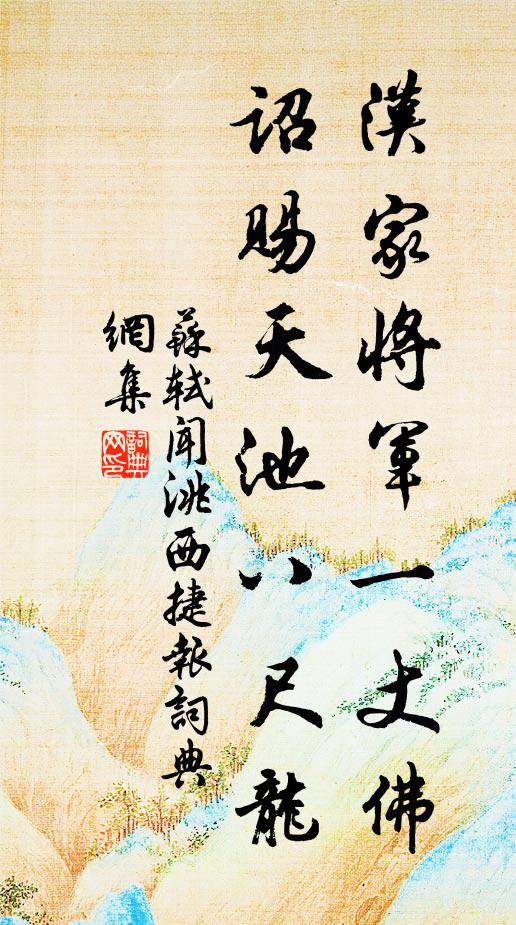 漢家將軍一丈佛
詔賜天池八尺龍
蘇軾聞洮西捷報詞典
網集
詞典
网印